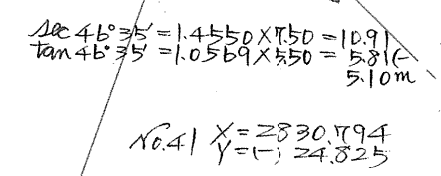 sec 46°35′=1.4550×7.50=10.91
tan 46°35′=1.0569×5.50= 5.81(-
5.10m
No.41 X=2830.794
Y=(-; 24.825